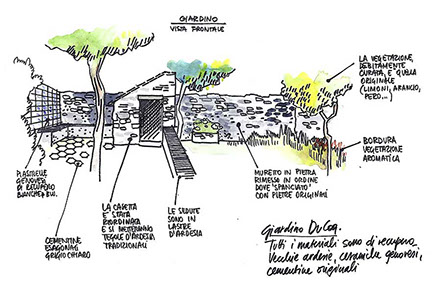 GIARDINO
VISTA FRONTALE
LA VEGETAZIONE,
DEBITAMENTE
CURATA, E' QUELLA
ORIGINALE
(LIMONI, ARANCIO,
PERO...)
BORDURA
VEGETAZIONE
AROMATICA
PIASTRELLE
GENOVESI
DI RECUPERO
BIANCHE E BLU.
CEMENTINE
ESAGONALI
GRIGIO CHIARO
LA CASETA
E' STATA
RIORDINATA
E SI METTERANNO
TEGOLE D'ARDESIA
TRADIZIONALI
LE SEDUTE
SONO IN
LASTRE
D'ARDESIA
MURETTO IN PIETRA
RIMESSO IN ORDINE
DOVE "SPANCIATO"
CON PIETRE ORIGINALI
Giardino
Tutti i materiali sono di recupero
Vecchie ardesie, ceramiche genovesi,
cementine originali